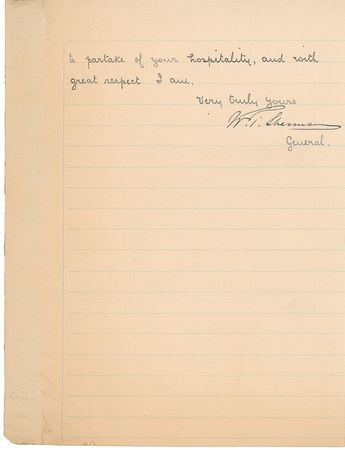 to partake of your hospitality, and with
great respect I am,
Very truly yours
W. T. Sherman
General.